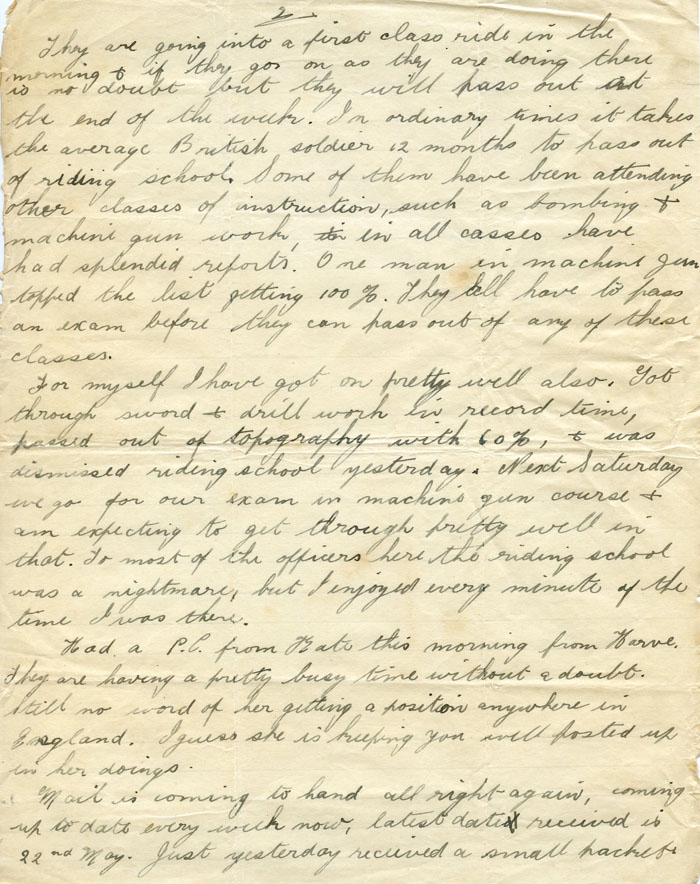 2.
They are going into a first class ride in the
morning & if they go on as they are doing there
is no doubt but they will pass out at
the end of the week. In ordinary times it takes
the average British soldier 12 months to pass out
of riding school. Some of them have been attending
other classes of instruction, such as bombing &
machine gun work, in all casses have
had splended reports. One man in machine gun
topped the list getting 100%. They all have to pass
an exam before they can pass out of any of these
classes.
For myself I have got on pretty well also. Got
through sword & drill work in record time,
passed out of topography with 60%, & was
dismissed riding school yesterday. Next Saturday
we go for our exam in machine gun course &
am expecting to get through pretty well in
that. To most of the officers here the riding school
was a nightmare, but I enjoyed every minute of the
time I was there.
Had a P.C. from Kate this morning from Harve.
They are having a pretty busy time without a doubt.
Still no word of her getting a position anywhere in
England. I guess she is keeping you well posted up
in her doings.
Mail is coming to hand all right again, coming
up to date every week now, latest date received is
22nd May. Just yesterday recieved a small packet